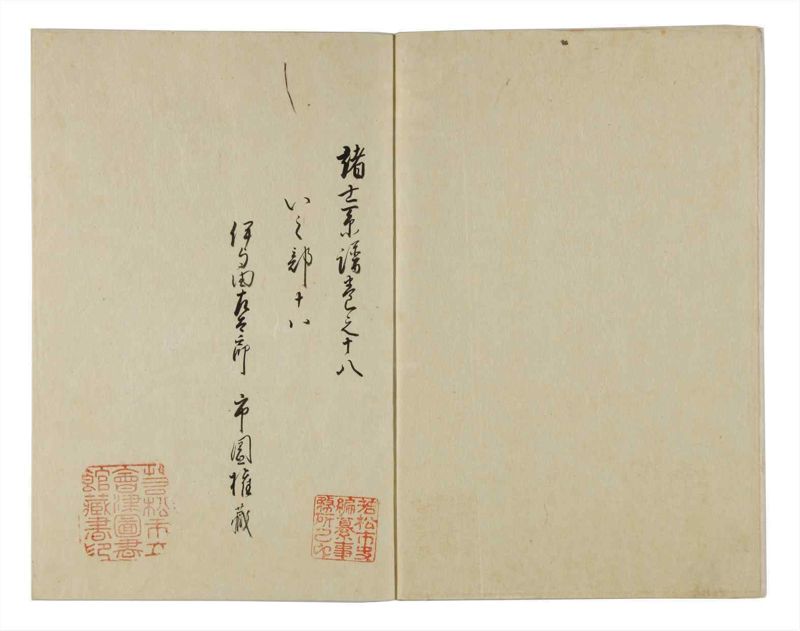 諸士系譜巻之十八
い之部十八
伊与田左吾郎 市岡権蔵
若松市史
編纂事
務所之印
若松市立
會津圖書
館藏書印